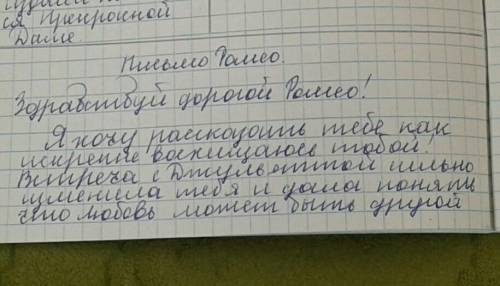 ся Прекрасной
Даме.
Письмо Ромео.
Здравствуй дорогой Ромео!
Я хочу рассказать тебе как
искренне восхищаюсь тобой!
Встреча с Джульеттой сильно
изменила тебя и дала понять
что любовь может быть другой